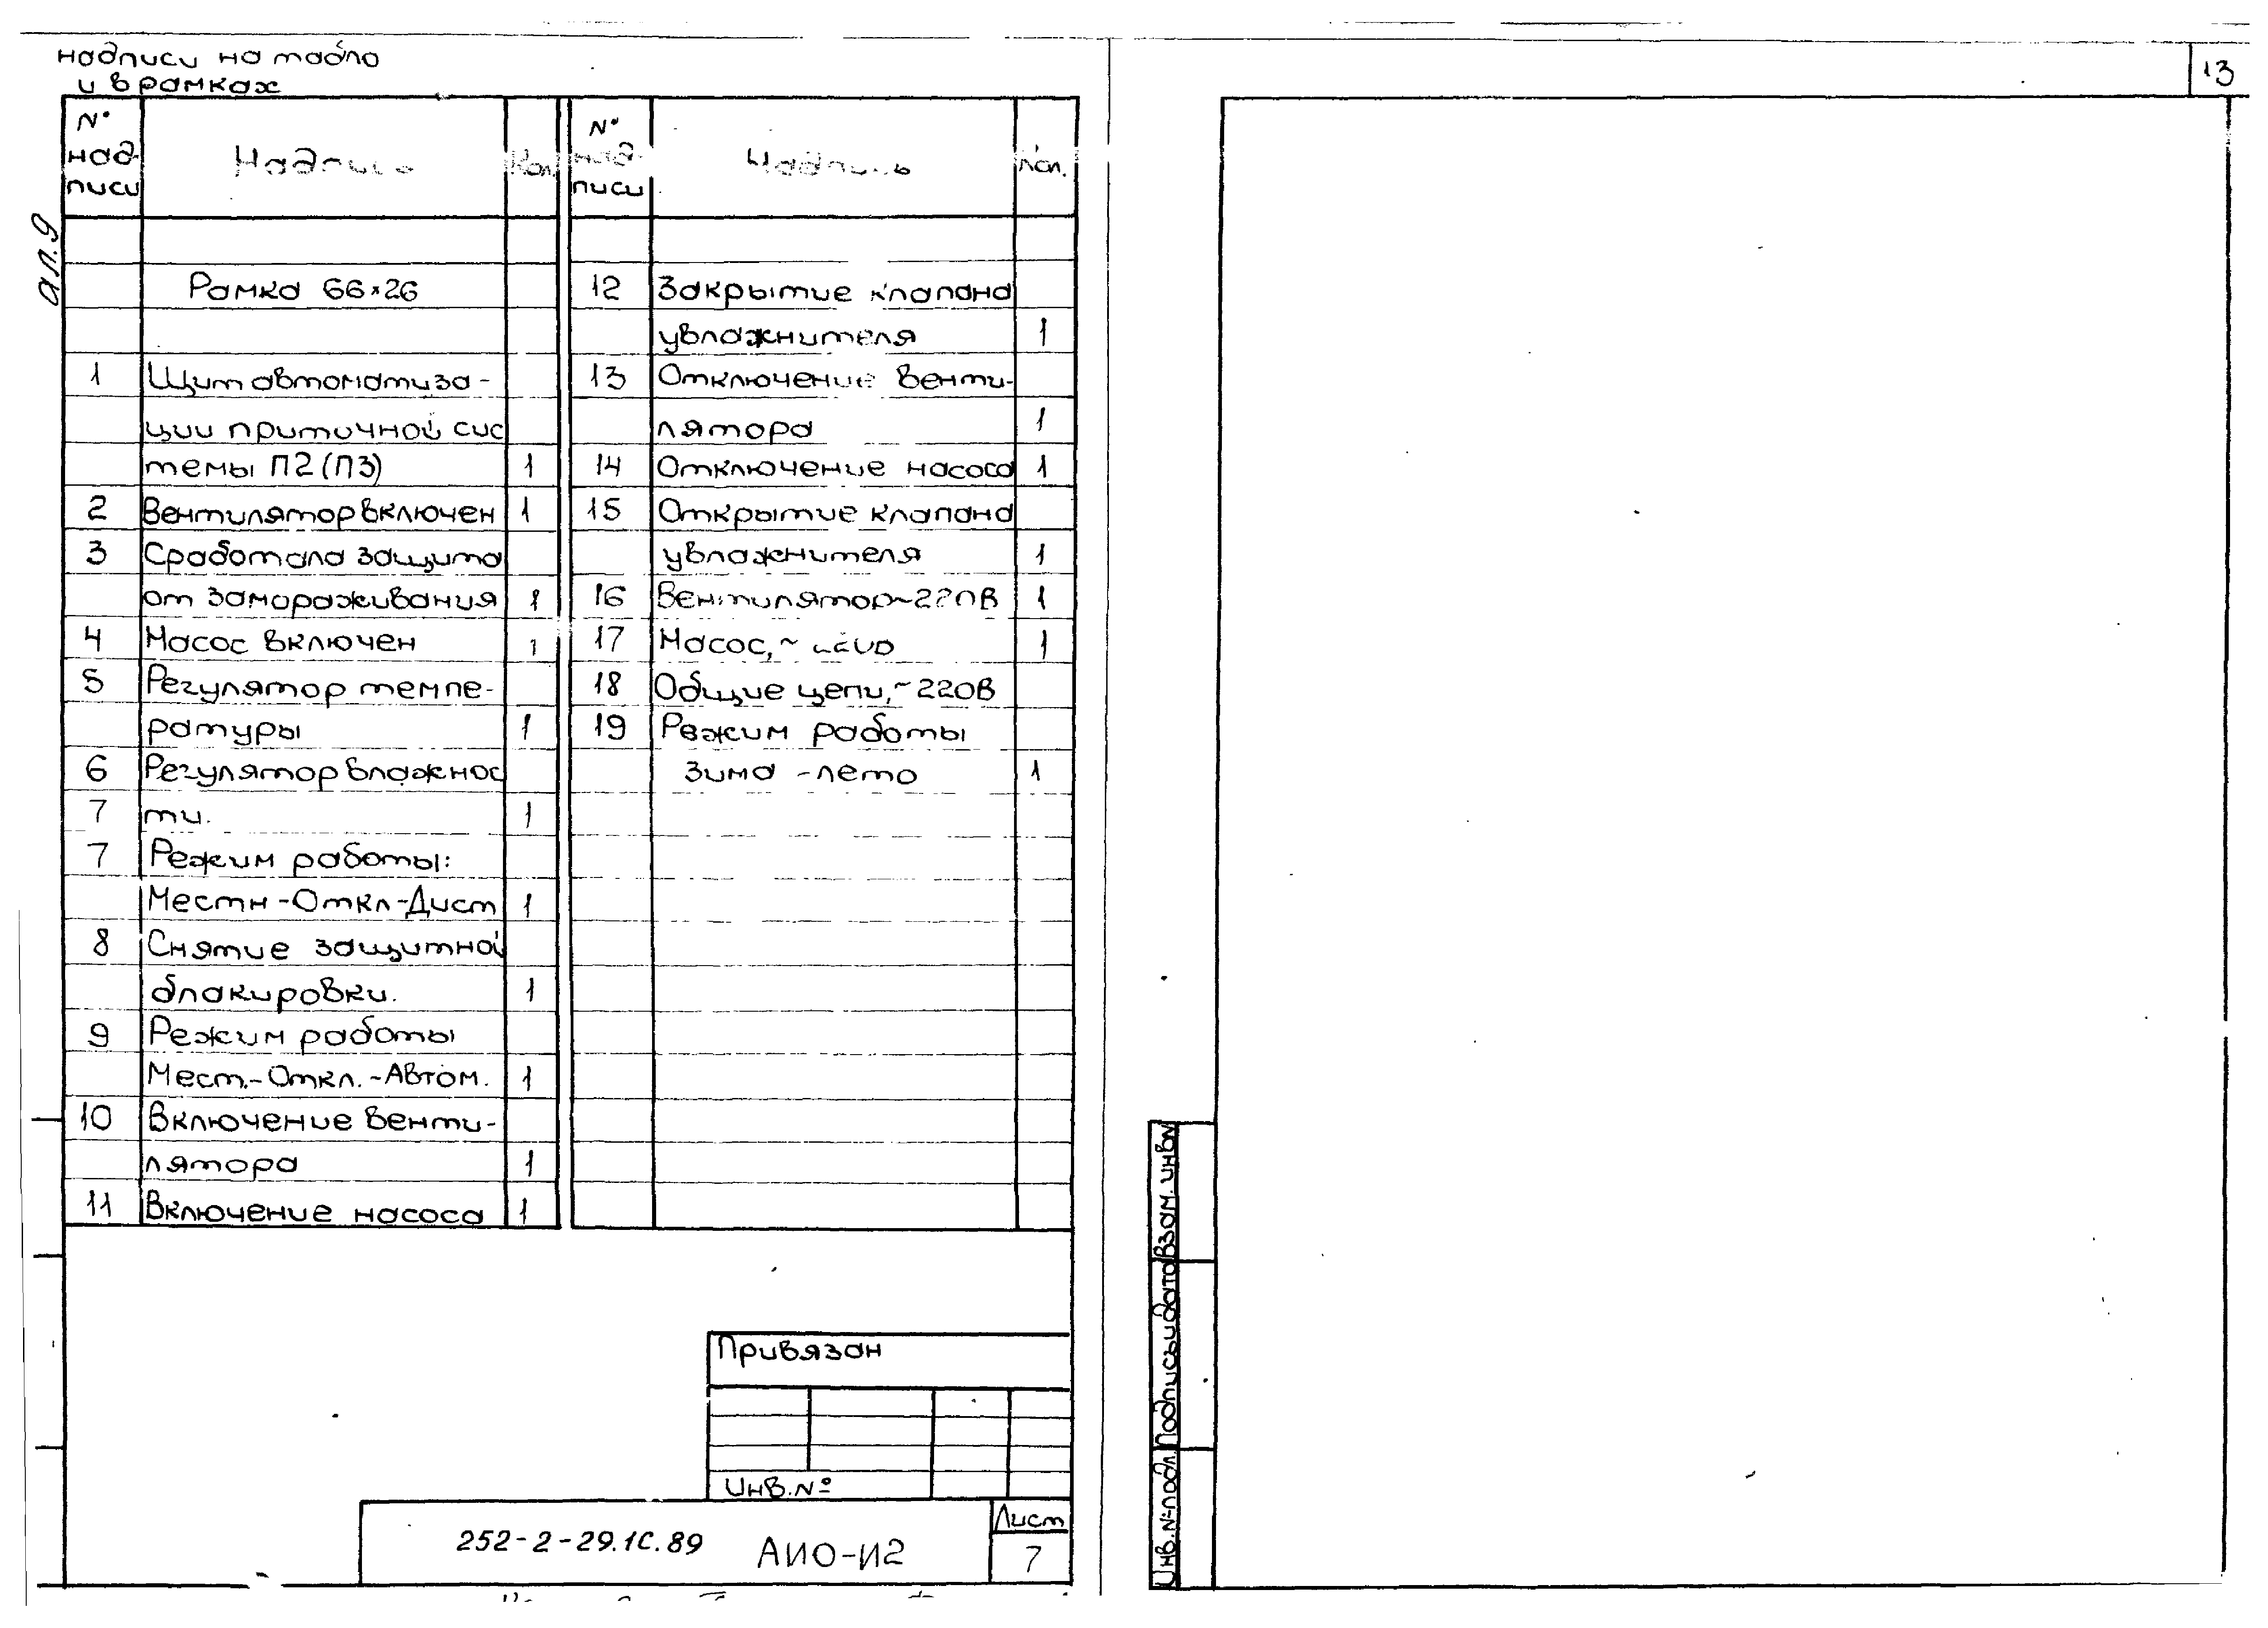 надписи на табло
и в рамках
13
ал.9
№ надписи Надпись Кол.
Рамка 66×26
1 Щит автоматиза-
ции приточной сис
темы П2(П3) 1
2 Вентилятор включен 1
3 Сработала защита
от замораживания 1
4 Насос включен 1
5 Регулятор темпе-
ратуры 1
6 Регулятор влажнос
7 ти. 1
7 Режим работы:
Местн-Откл-Дист 1
8 Снятие защитной
блакировки. 1
9 Режим работы
Мест.-Откл.-Автом. 1
10 Включение венти-
лятора 1
11 Включение насоса 1
№ надписи Надпись Кол.
12 Закрытие клапана
увлажнителя 1
13 Отключение венти-
лятора 1
14 Отключение насоса 1
15 Открытие клапана
увлажнителя 1
16 Вентилятор~220В 1
17 Насос,~ 1
18 Общие цепи,~220В
19 Режим работы
зима-лето 1
Привязан
Инв.№
252-2-29.1С.89 АИО-И2
Лист
7
Взам. инв№
Подпись и дата
Инв.№подл.